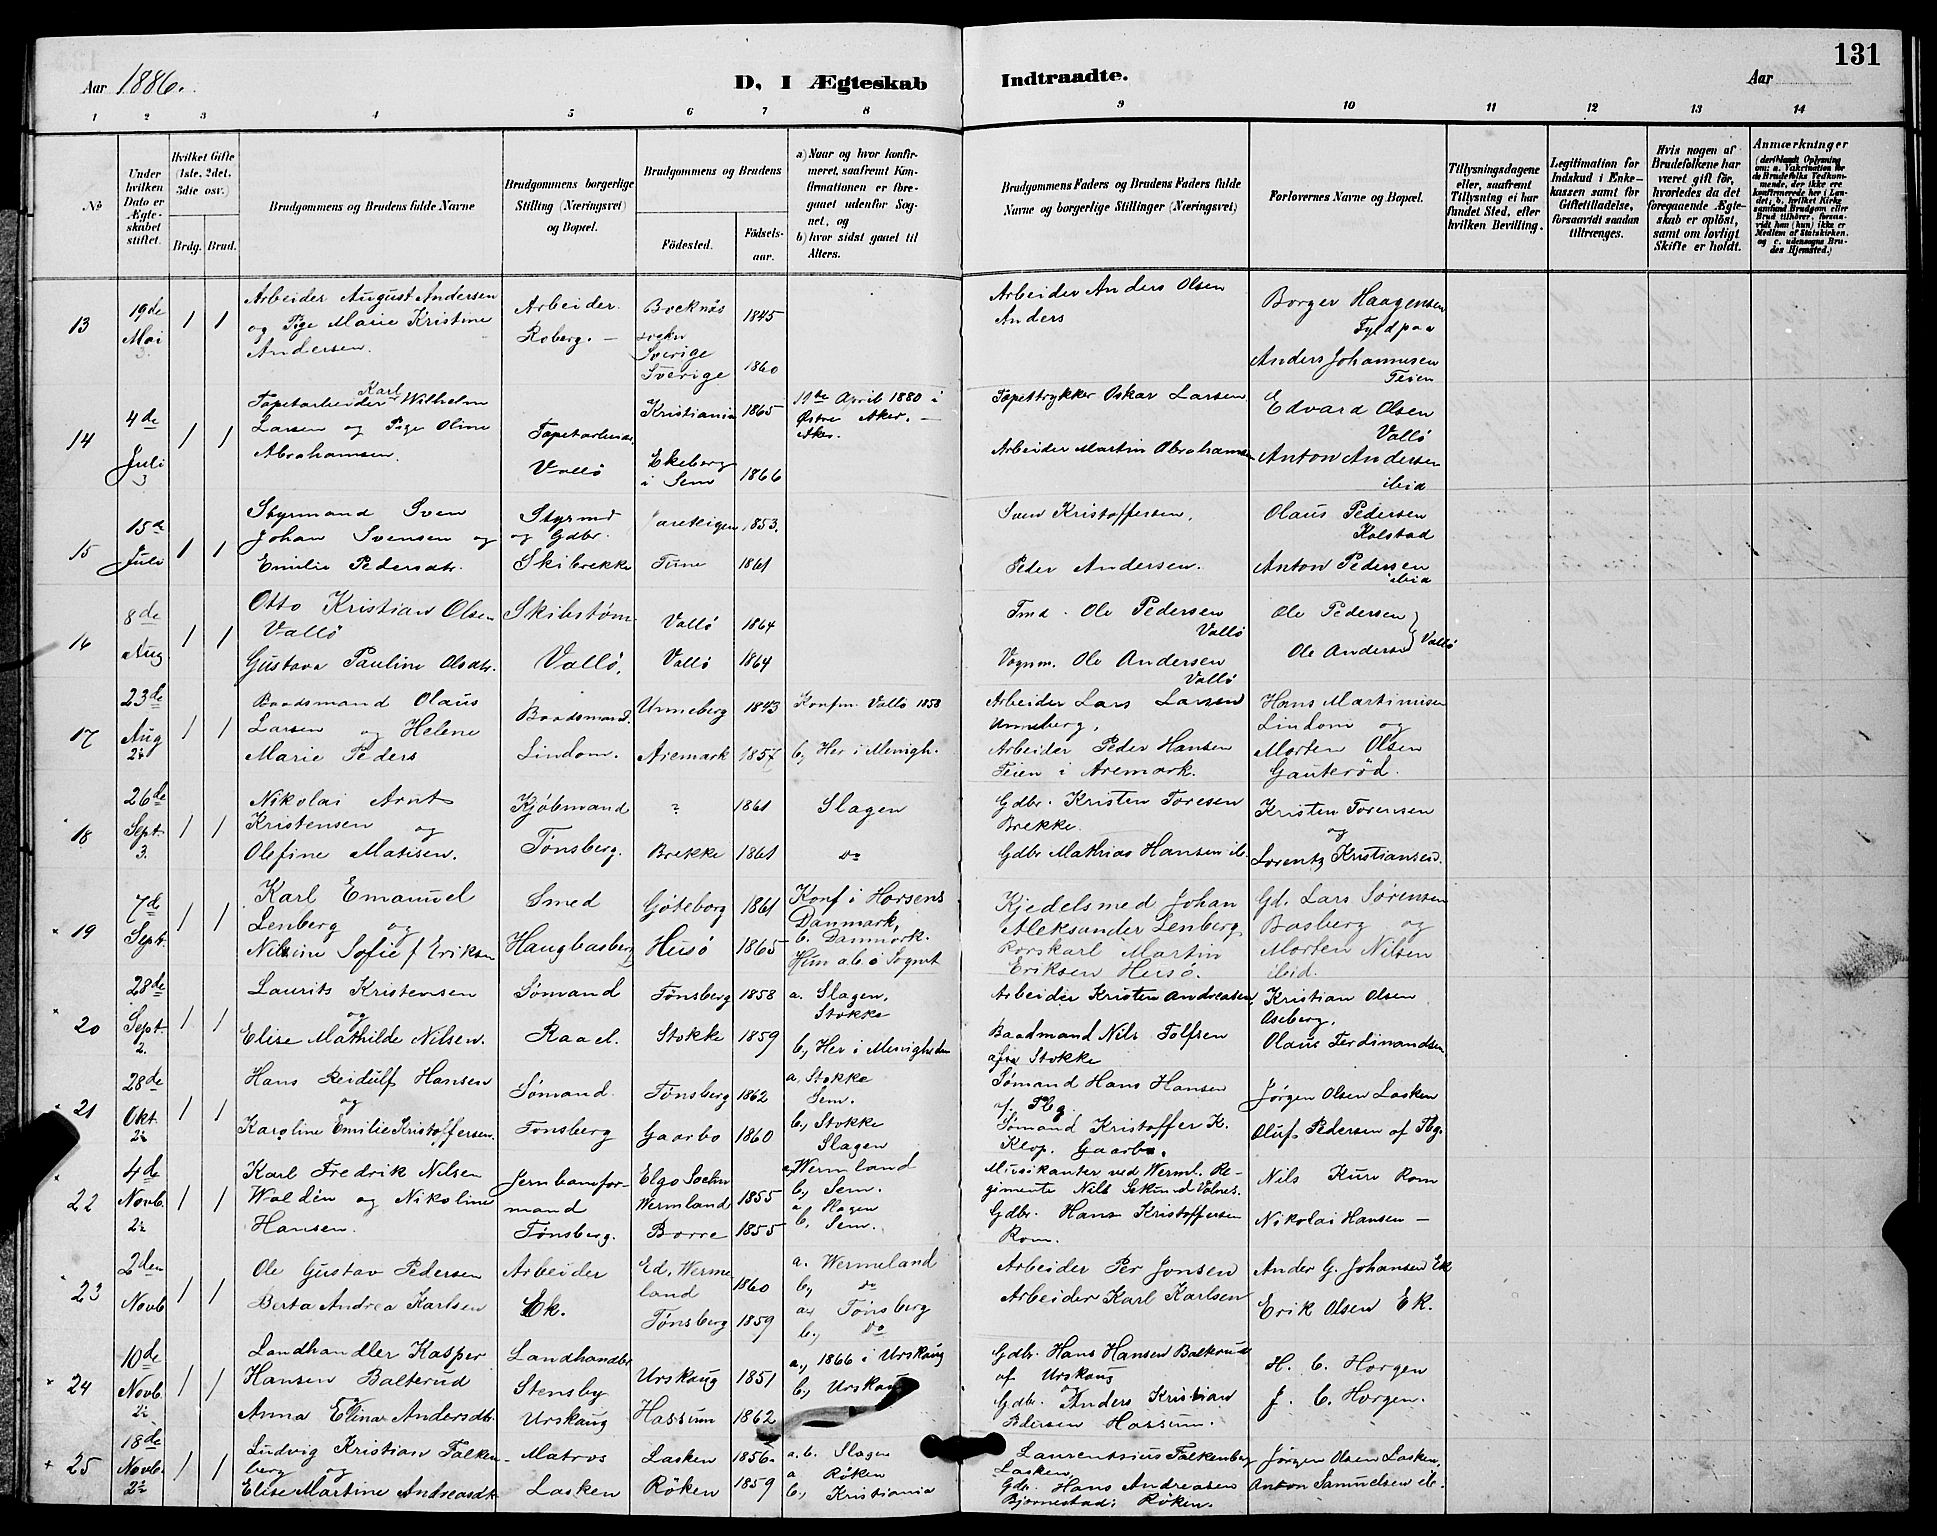 131
Aar 1886.
D, I Ægteskab Indtraadte.
Aar
1 2 3 4 5 6 7 8 9 10 11 12 13 14
No
Under hvilken Dato er Ægteskabet stiftet.
Hvilket Gifte (1ste, 2det, 3die osv.)
Brdg. Brud.
Brudgommens og Brudens fulde Navne
Brudgommens borgerlige Stilling (Næringsvei) og Bopæl.
Brudgommens og Brudens
Fødested.
Fødsels-aar.
a) Naar og hvor konfirmeret, saafremt Konfirmationen er foregaaet udenfor Sognet, og
b) hvor sidst gaaet til Alters.
Brudgommens Faders og Brudens Faders fulde Navne og borgerlige Stillinger (Næringsvei)
Forlovernes Navne og Bopæl.
Tillysningsdagene eller, saafremt Tillysning ei har fundet Sted, efter hvilken Bevilling.
Legitimation for Indskud i Enkekassen samt for Giftetilladelse, forsaavidt saadan tiltrænges.
Hvis nogen af Brudefolkene har været gift før, hvorledes da det foregaaende Ægteskab er opløst, samt om lovligt Skifte er holdt.
Anmærkninger
13 19de Mai 3. 1 1
Arbeider August Andersen
og Pige Marie Kristine
Andersen.
Arbeider.
Roberg. —
Bocknäs
sockn
Sverige 1845
Sverige 1860
Arbeider Anders Olsen
Anders
Borger Haagensen
Fyldpaa
Anders Johannesen
Teien
14 4de Juli 3 1 1
Tapetarbeider Karl Wilhelm
Larsen og Pige Oline
Abrahamsen.
Tapetarbeider
Vallö
Kristiania 1865
Ekeberg
i Sem 1866
11te April 1880 i
Østre Aker. —
Aker.
Tapettrykker Oskar Larsen
Arbeider Martin Abrahamsen
Edvard Olsen
Vallö
Anton Andersen
ibid
15 15de Juli 1 1
Styrmand Sven
Johan Svensen og
Emilie Pedersdtr.
Styrmd
og Gdbr.
Skibrekke
1853.
Tune 1861
Sven Kristoffersen.
Peder Andersen.
Olaus Pedersen
Kolstad
Anton Pedersen
ibid
16 8de Aug. 1 1
Otto Kristian Olsen
Vallö
Gustava Pauline Olsdtr.
Skibstøm.
Vallö.
Vallö 1864
Vallö 1864
Tmd. Ole Pedersen
Vallö
Vognm. Ole Andersen
Vallö
Ole Pedersen
Ole Andersen } Vallö
17 23de Aug 2½ 1 1
Baadsmand Olaus
Larsen og Helene
Marie Peders
Baadsmand.
Lindom.
Unneberg 1843
Aremark 1857
Konfm. Vallö 1858
b, Her i Menigh.
Arbeider Lars Larsen
Unneberg,
Arbeider Peder Hansen
Teien i Aremark.
Hans Martinusen
Lindom og
Morten Olsen
Gauterød.
18 26de Sept. 3. 1 1
Nikolai Arnt
Kristensen og
Olefine Matisen.
Kjøbmand
Tønsberg.
? 1861
Brekke 1861
Slagen
do
Gdbr. Kristen Toresen
Brekke.
Gdbr Mathias Hansen ib.
Kristen Torensen
og
Lorentz Kristiansen.
× 19 7de Sept. 1 1
Karl Emanuel
Lenberg og
Nilsine Sofie f Eriksen
Smed
Haugbasberg
Göteborg 1861
Husö 1865
Konf i Horsens
Danmark,
b. Danmark.
Hun ab. i Sognet
Kjedelsmed Johan
Aleksander Lenberg.
Rorskarl Martin
Eriksen Husö.
Gd. Lars Sørensen
Basberg og
Morten Nilsen
ibid.
× 20 28de Sept. 2. 1 1
Laurits Kristensen
og
Elise Mathilde Nilsen.
Sømand
Raael.
Tønsberg 1858
Stokke 1859
a. Slagen,
Stokke
b, Her i Menigheden
Arbeider Kristen Andreasen,
Baadmand Nils Tolfsen
afra Stokke
Kristian Olsen
Oseberg,
Olaus Ferdinandsen
× 21 28de Okt. 2½ 1 1
Hans Reidulf Hansen
og
Karoline Emilie Kristoffersen.
Sømand.
Tønsberg
Tønsberg 1862
Gaarbo 1860
a, Stokke
Sem.
b, Stokke
Slagen
Sømand Hans Hansen
f. Tbg.
Sømand Kristoffer K.
Klop. Gaarbo.
Jørgen Olsen Lasken
Oluf Pedersen af Tbg.
22 4de Novb. 2½ 1 1
Karl Fredrik Nilsen
Waldin og Nikoline
Hansen.
Jernbanefor-
mand
Tønsberg.
Elgo Sockn
Wermland 1855
Borre 1855
a, Wermland
b, Sem.
a Slagen
b, Sem.
Musikanter ved Werml. Re-
gimente Nils
Gdbr. Hans Kristoffersen
Rom.
Nils Kure Rom
Nikolai Hansen —
23 2den Novb 1 1
Ole Gustav Pedersen
Berta Andrea Karlsen
Arbeider
Ek.
Ed, Werme
land 1860
Tønsberg 1859
a. Wermeland
b, do
a, Tønsberg
b, do
Arbeider Per Jonsen
Arbeider Karl Karlsen
Ander G. Johansen Ek
Erik Olsen Ek.
× 24 10de Novb. 2½ 1 1
Landhandler Kasper
Hansen Balterud
og
Anna Elina Andersdt.
Landhandler
Stensby
Urskaug
Urskaug 1851
Hassum 1862
a, 1866 i Urskaug
b, Urskaug
Gdbr. Hans Hansen Balterud
af Urskaug
og
Gdbr. Anders Kristian
Pedersen Hassum.
H. C. Horgen
J. C. Horgen.
+ 25 18de Novb. 2½ 1 1
Ludvig Kristian Falken-
berg og
Elise Martine Andreasdtr
Matros
Lasken
Lasken 1856.
Röken 1859
a.b. Slagen
a Røken
b, Kristiania
Laurentsius Falkenberg
Lasken
Gdr. Hans Andreasen
Bjornestad, Røken.
Jørgen Olsen Lasken,
Anton Samuelsen ib.